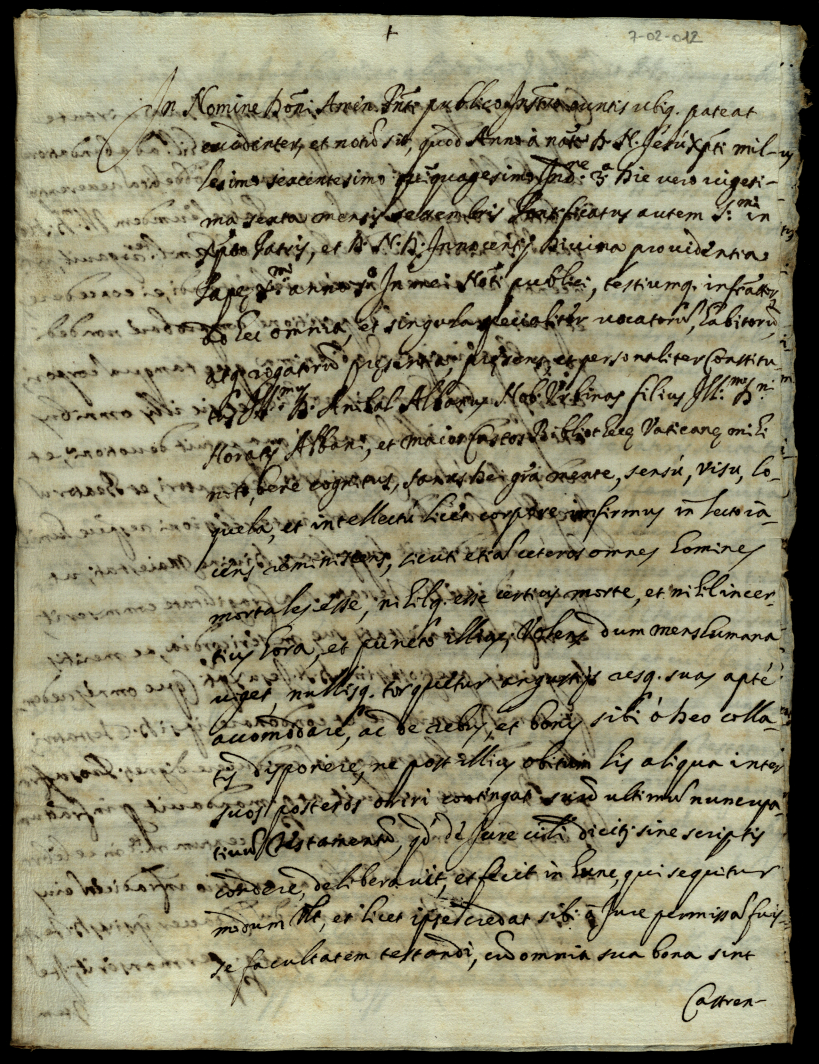 +
7-02-012
In Nomine Dñi Amen Pñti publico Instro cunctis ubiq. pateat
evidenter, et notũ sit, quod Anno à natte D. N. Jesu Xpti mil-
lesimo sexcentesimo quinquagesimo Ind.ne 3.a Die vero vigesi-
ma sexta mensis septembris Pontificatus autem S.mi in
Xpto Patris, et D. N. D. Innocentij Divina providentia
Papę Xmi anno In mei Notij publici, testiumq. infrattor
ad hec omnia, et singula specialiter vocatorũ, habitorũ,
atq. rogatorũ pręsentia, pręsens, et personaliter Constitu-
tus Ill.mus D. Anibal Albanus Nob. Urbinas filius Ill.mi D.ni
Horatij Albani, et maior Custos Bibliothecę Vaticanę mihi
notto bene cognitus, sanus Dei grã mente, sensù, visu, lo-
quela, et intellectu licet corpore infirmus in lecto ia-
cens, sicuti etiã ceteros omnes homines
mortales esse, nihilq. esse certius morte, et nihil incer-
tius hora, et puncto illius, Volens dum mens humana
viget, nullisq. torquetur angustijs resq. suas aptè
accomodare, ac de rebus, et bonis sibi à Deo colla-
tis disponere, ne post illius obitum lis aliqua inter
suos posteros oriri contingat suũ ultimũ nuncupa-
tivũ Testamentũ, qd de Jure civili dicitur sine scriptis
condere, deliberavit, et fecit in hunc, qui sequitur
modum Vtt, et licet ipse credat sibi à Jure permissã fuis-
se facultatem testandi, cũ omnia sua bona sint
Castren-